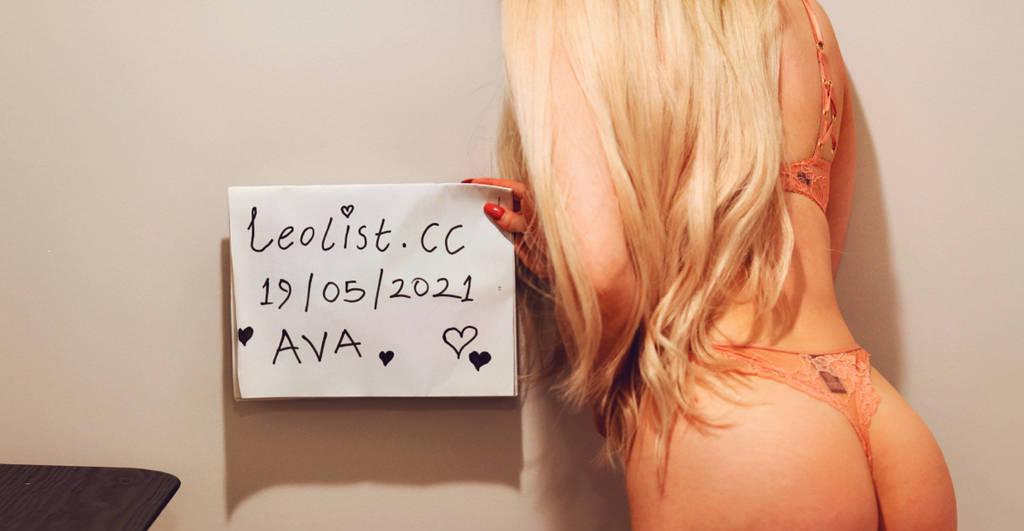 Leolist.cc
19/05/2021
AVA